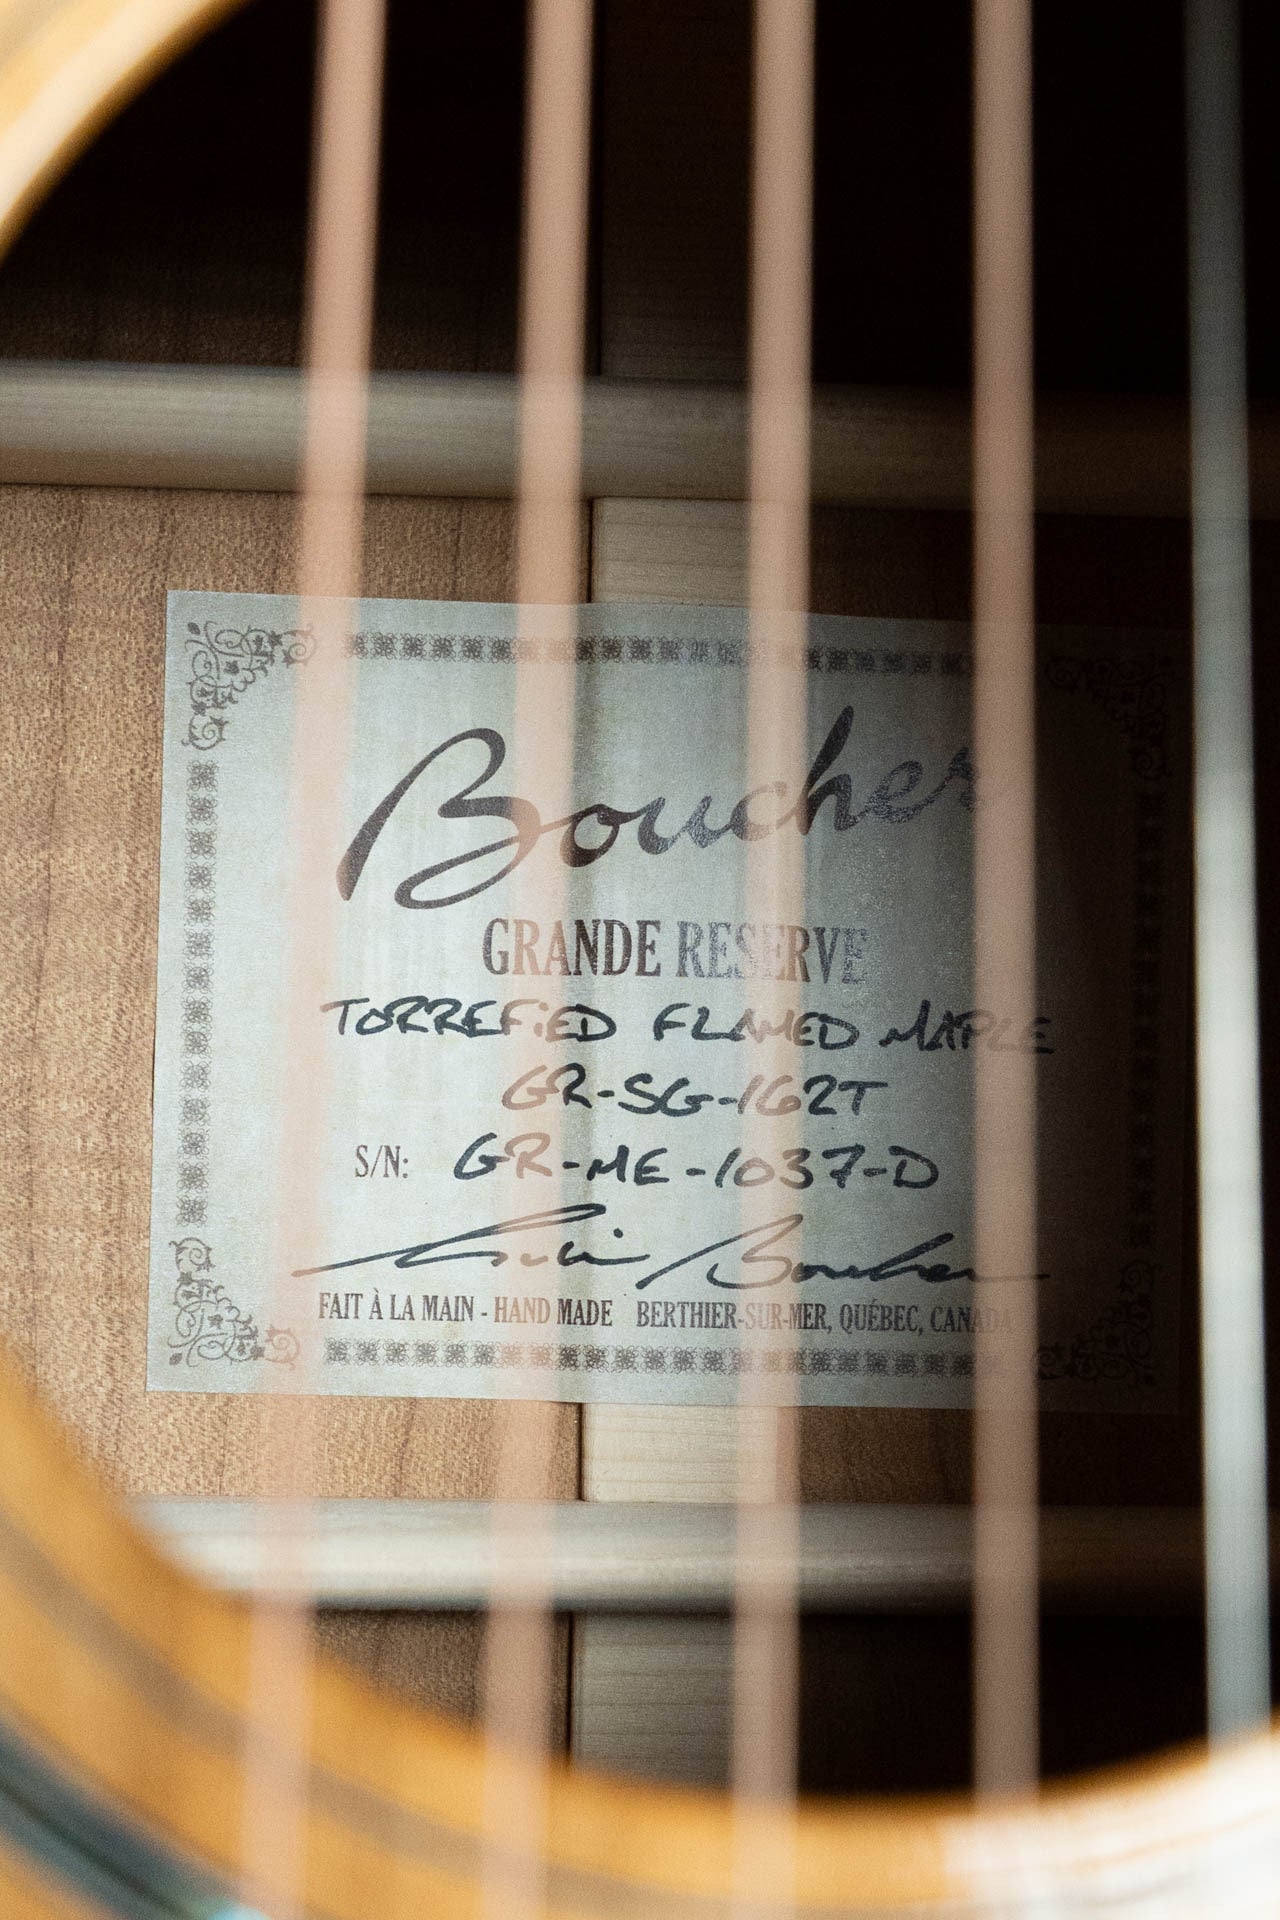 Boucher
GRANDE RESERVE
TORREFIED FLAMED MAPLE
GR-SG-162T
S/N: GR-ME-1037-D
Robin Boucher
FAIT À LA MAIN - HAND MADE BERTHIER-SUR-MER, QUÉBEC, CANADA